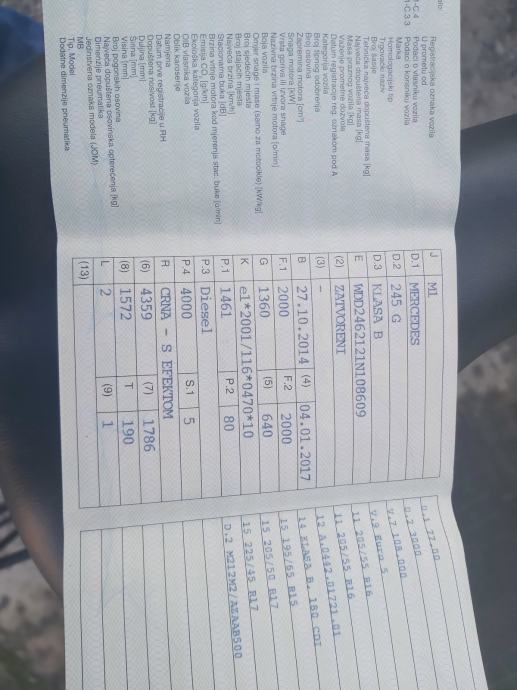 Registracijska oznaka vozila
U prometu od
Podaci o vlasniku vozila
Podaci o korisniku vozila
Marka
Homologacijski tip
Trgovački naziv
Broj šasije
Najveća dopuštena masa [kg]
Masa praznog vozila [kg]
Važenje prometne dozvole
Datum registracije reg. oznakom pod A
Kategorija vozila
Broj tipnog odobrenja
Broj osovina
Zapremina motora [cm³]
Snaga motora [kW]
Vrsta goriva ili izvora snage
Nazivna brzina vrtnje motora [o/min]
Boja vozila
Omjer snage i mase (samo za motocikle) [kW/kg]
Broj sjedećih mjesta
Broj stajaćih mjesta
Najveća brzina [km/h]
Stacionarna buka [dB]
Brzina vrtnje motora kod mjerenja stac. buke [o/min]
Emisija CO₂ [g/km]
Ekološka kategorija vozila
Oblik karoserije
Namjena
Datum prve registracije u RH
Dopuštena nosivost [kg]
Dužina [mm]
Širina [mm]
Visina [mm]
Broj pogonskih osovina
Najveća dopuštena osovinska opterećenja [kg]
Dimenzije pneumatika
Jedinstvena oznaka modela (JOM)
MB
Tip, Model
Dodatne dimenzije pneumatika
J M1
D.1 MERCEDES
D.2 245 G
D.3 KLASA B
E WDD2462121N108609
(2) ZATVORENI
(3) –
B 27.10.2014 (4) 04.01.2017
F.1 2000 F.2 2000
G 1360 (5) 640
K e1*2001/116*0470*10
P.1 1461 P.2 80
P.3 Diesel
P.4 4000 S.1 5
R CRNA - S EFEKTOM
(6) 4359 (7) 1786
(8) 1572 T 190
L 2 (9) 1
(13)
U.1 77.00
U.2 3000
V.7 108.000
V.9 Euro 5
11 205/55 R16
11 205/55 R16
12 A.0442.01721.01
14 KLASA B, 180 CDI
15 195/65 R15
15 205/50 R17
15 225/45 R17
D.2 M212M2/AZAAB500